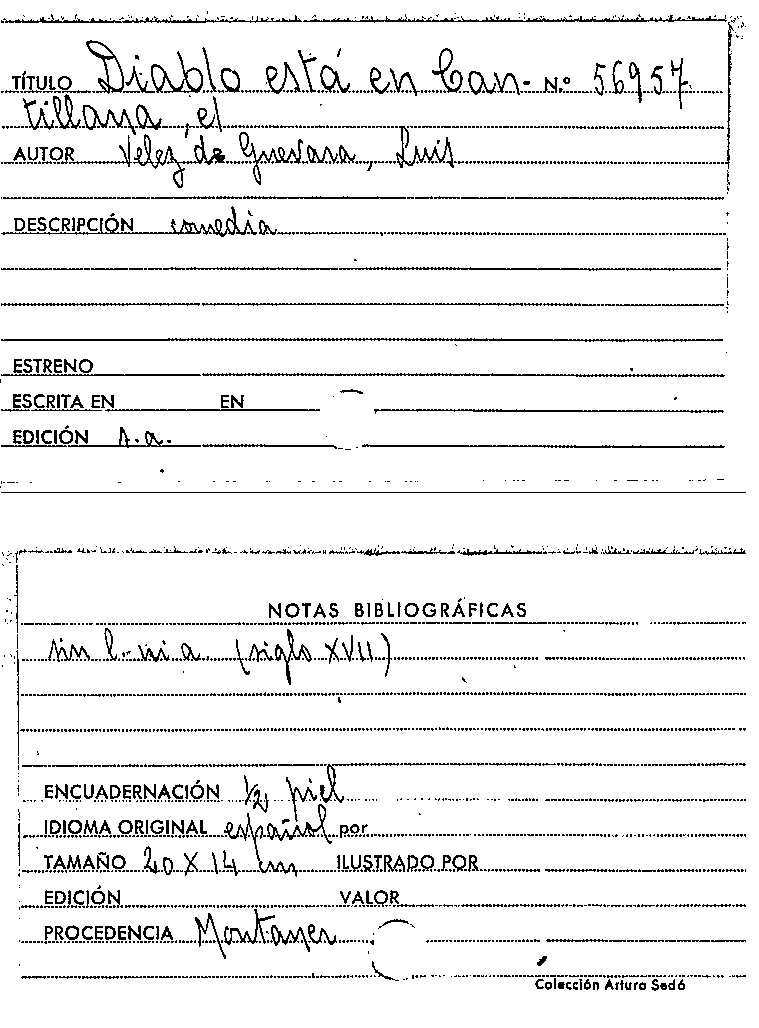 TÍTULO Diablo está en Can- N.º 56957
tillana, el
AUTOR Velez de Guevara, Luis
DESCRIPCIÓN comedia
ESTRENO
ESCRITA EN EN
EDICIÓN A.a.
NOTAS BIBLIOGRÁFICAS
sin l. ni a. (siglo XVII)
ENCUADERNACIÓN 1/2 piel
IDIOMA ORIGINAL español por
TAMAÑO 20 X 14 cm ILUSTRADO POR
EDICIÓN VALOR
PROCEDENCIA Montaner
Colección Arturo Sedó